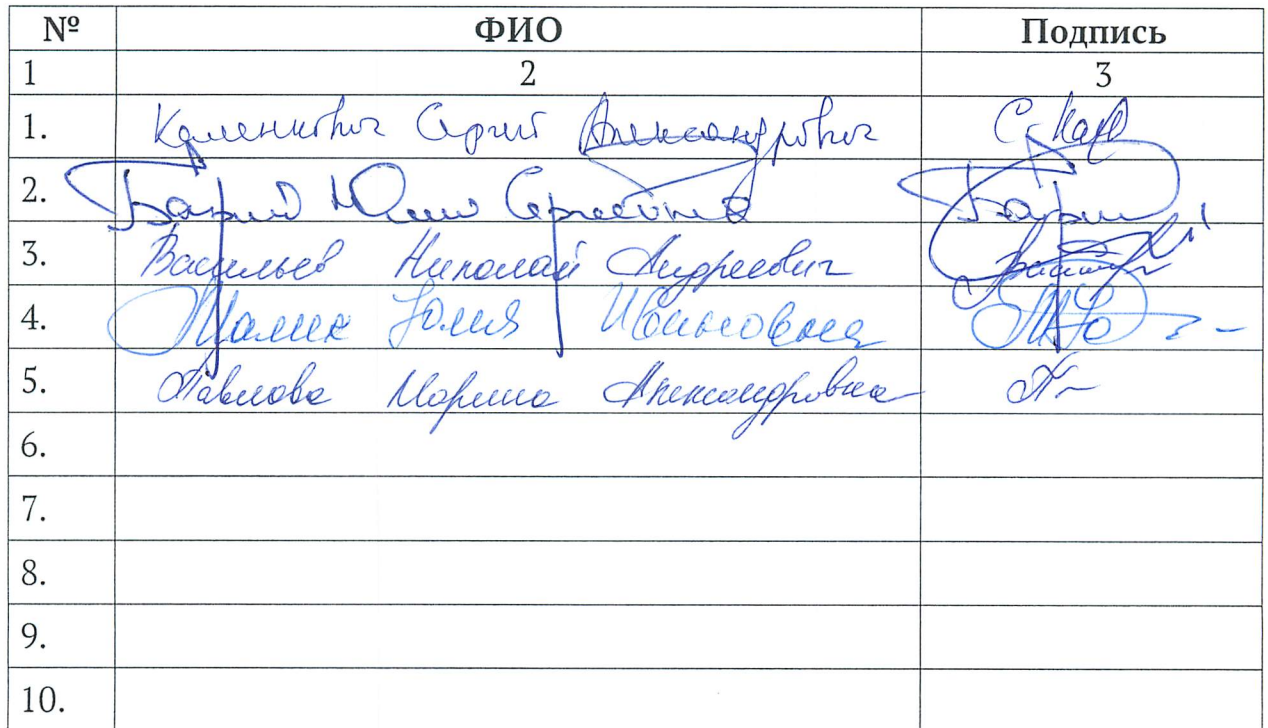 № ФИО Подпись
1 2 3
1. Каленкович Сергей Александрович
2. Юлия Сергеевна
3. Васильев Николай Андреевич
4. Юлия
5. Павлова Марина Александровна
6.
7.
8.
9.
10.